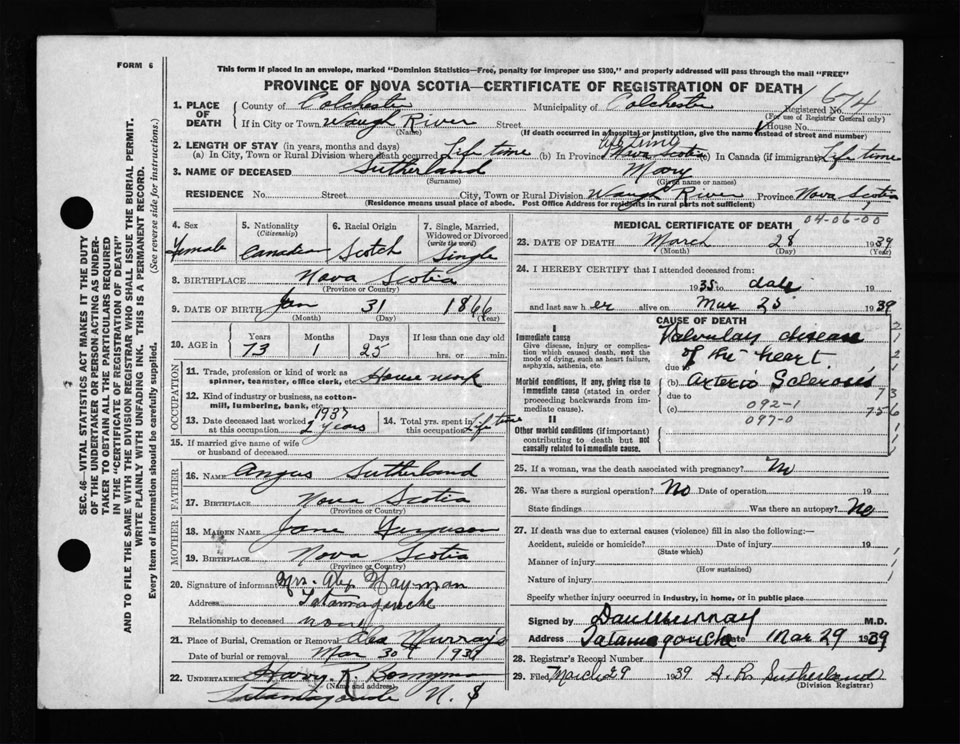 FORM 6
This form if placed in an envelope, marked "Dominion Statistics—Free, penalty for improper use $300," and properly addressed will pass through the mail "FREE"
PROVINCE OF NOVA SCOTIA—CERTIFICATE OF REGISTRATION OF DEATH
674
1. PLACE OF DEATH County of Colchester Municipality of Colchester Registered No.
(For use of Registrar General only)
If in City or Town Waugh River Street House No.
(Name) (If death occurred in a hospital or institution, give the name instead of street and number)
2. LENGTH OF STAY (in years, months and days)
(a) In City, Town or Rural Division where death occurred Life time (b) In Province Nova Scotia (c) In Canada (if immigrant) Life time
3. NAME OF DECEASED Sutherland Mary
(Surname) (Given name or names)
RESIDENCE No. Street City, Town or Rural Division Waugh River Province Nova Scotia
(Residence means usual place of abode. Post Office Address for residents in rural parts not sufficient)
4. Sex Female
5. Nationality (Citizenship) Canadian
6. Racial Origin Scotch
7. Single, Married, Widowed or Divorced (write the word) Single
8. BIRTHPLACE Nova Scotia
(Province or Country)
9. DATE OF BIRTH Jan 31 1866
(Month) (Day) (Year)
10. AGE in Years Months Days If less than one day old
73 1 25 hrs. or min.
OCCUPATION
11. Trade, profession or kind of work as spinner, teamster, office clerk, etc. House work
12. Kind of industry or business, as cotton-mill, lumbering, bank, etc.
13. Date deceased last worked at this occupation 1937 2 years
14. Total yrs. spent in this occupation Life time
15. If married give name of wife or husband of deceased
FATHER
16. NAME Angus Sutherland
17. BIRTHPLACE Nova Scotia
(Province or Country)
MOTHER
18. MAIDEN NAME Jane Ferguson
19. BIRTHPLACE Nova Scotia
(Province or Country)
20. Signature of informant Mrs. Alex Hayman
Address Tatamagouche
Relationship to deceased
21. Place of Burial, Cremation or Removal Murray's
Date of burial or removal Mar 30 1939
22. UNDERTAKER
(Name and address)
Tatamagouche N.S
04-06-00
MEDICAL CERTIFICATE OF DEATH
23. DATE OF DEATH March 28 1939
(Month) (Day) (Year)
24. I HEREBY CERTIFY that I attended deceased from:
1935 to date 19
and last saw her alive on Mar 25 1939
CAUSE OF DEATH
I
Immediate cause
Give disease, injury or complication which caused death, not the mode of dying, such as heart failure, asphyxia, asthenia, etc.
Valvular disease
of the heart
due to
Morbid conditions, if any, giving rise to immediate cause (stated in order proceeding backwards from immediate cause).
(b) Arterio Sclerosis
due to
(c) 092-1
097-0
II
Other morbid conditions (if important) contributing to death but not causally related to immediate cause.
25. If a woman, was the death associated with pregnancy? No
26. Was there a surgical operation? No Date of operation 19
State findings Was there an autopsy? No
27. If death was due to external causes (violence) fill in also the following:—
Accident, suicide or homicide? Date of injury 19
(State which)
Manner of injury
(How sustained)
Nature of injury
Specify whether injury occurred in industry, in home, or in public place
Signed by Dan Murray M.D.
Address Tatamagouche Date Mar 29 1939
28. Registrar's Record Number
29. Filed March 29 1939 A. R. Sutherland
(Division Registrar)
SEC. 46—VITAL STATISTICS ACT MAKES IT THE DUTY
OF THE UNDERTAKER OR PERSON ACTING AS UNDER-
TAKER TO OBTAIN ALL THE PARTICULARS REQUIRED
IN THE "CERTIFICATE OF REGISTRATION OF DEATH"
AND TO FILE THE SAME WITH THE DIVISION REGISTRAR WHO SHALL ISSUE THE BURIAL PERMIT.
WRITE PLAINLY WITH UNFADING INK. THIS IS A PERMANENT RECORD.
Every item of information should be carefully supplied. (See reverse side for instructions.)